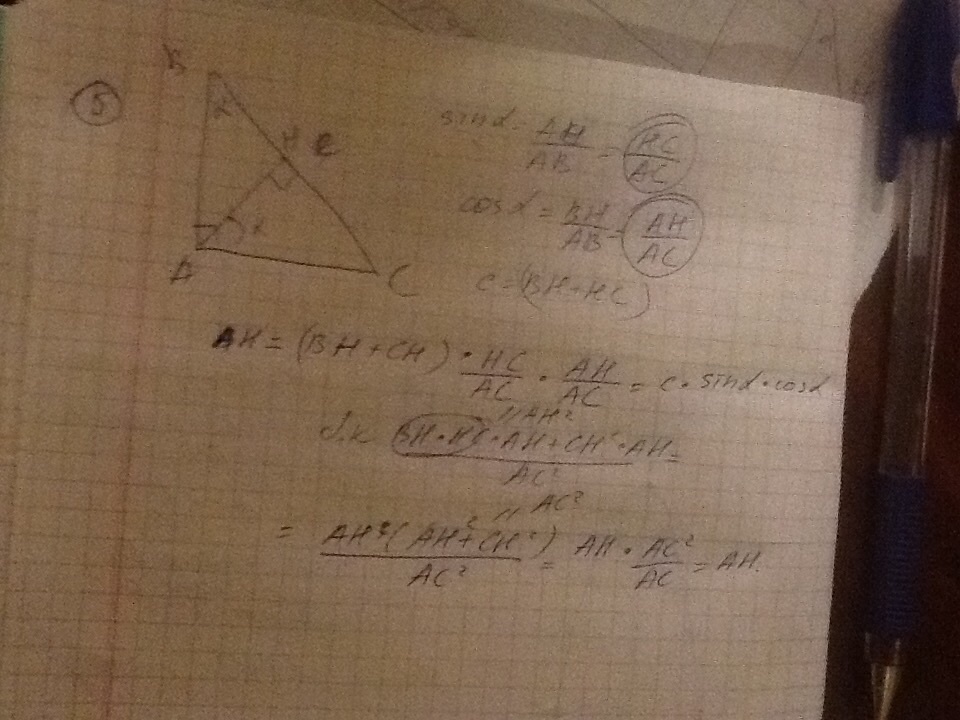 5
B
α
H
α
A
C
sinα = AH/AB = HC/AC
cosα = BH/AB = AH/AC
c = (BH+HC)
AH = (BH+CH) · HC/AC · AH/AC = c · sinα · cosα
"AH²
BH·HC·AH+CH²·AH / AC² =
"AC²
= AH·(AH²+CH²) / AC² = AH · AC²/AC = AH.